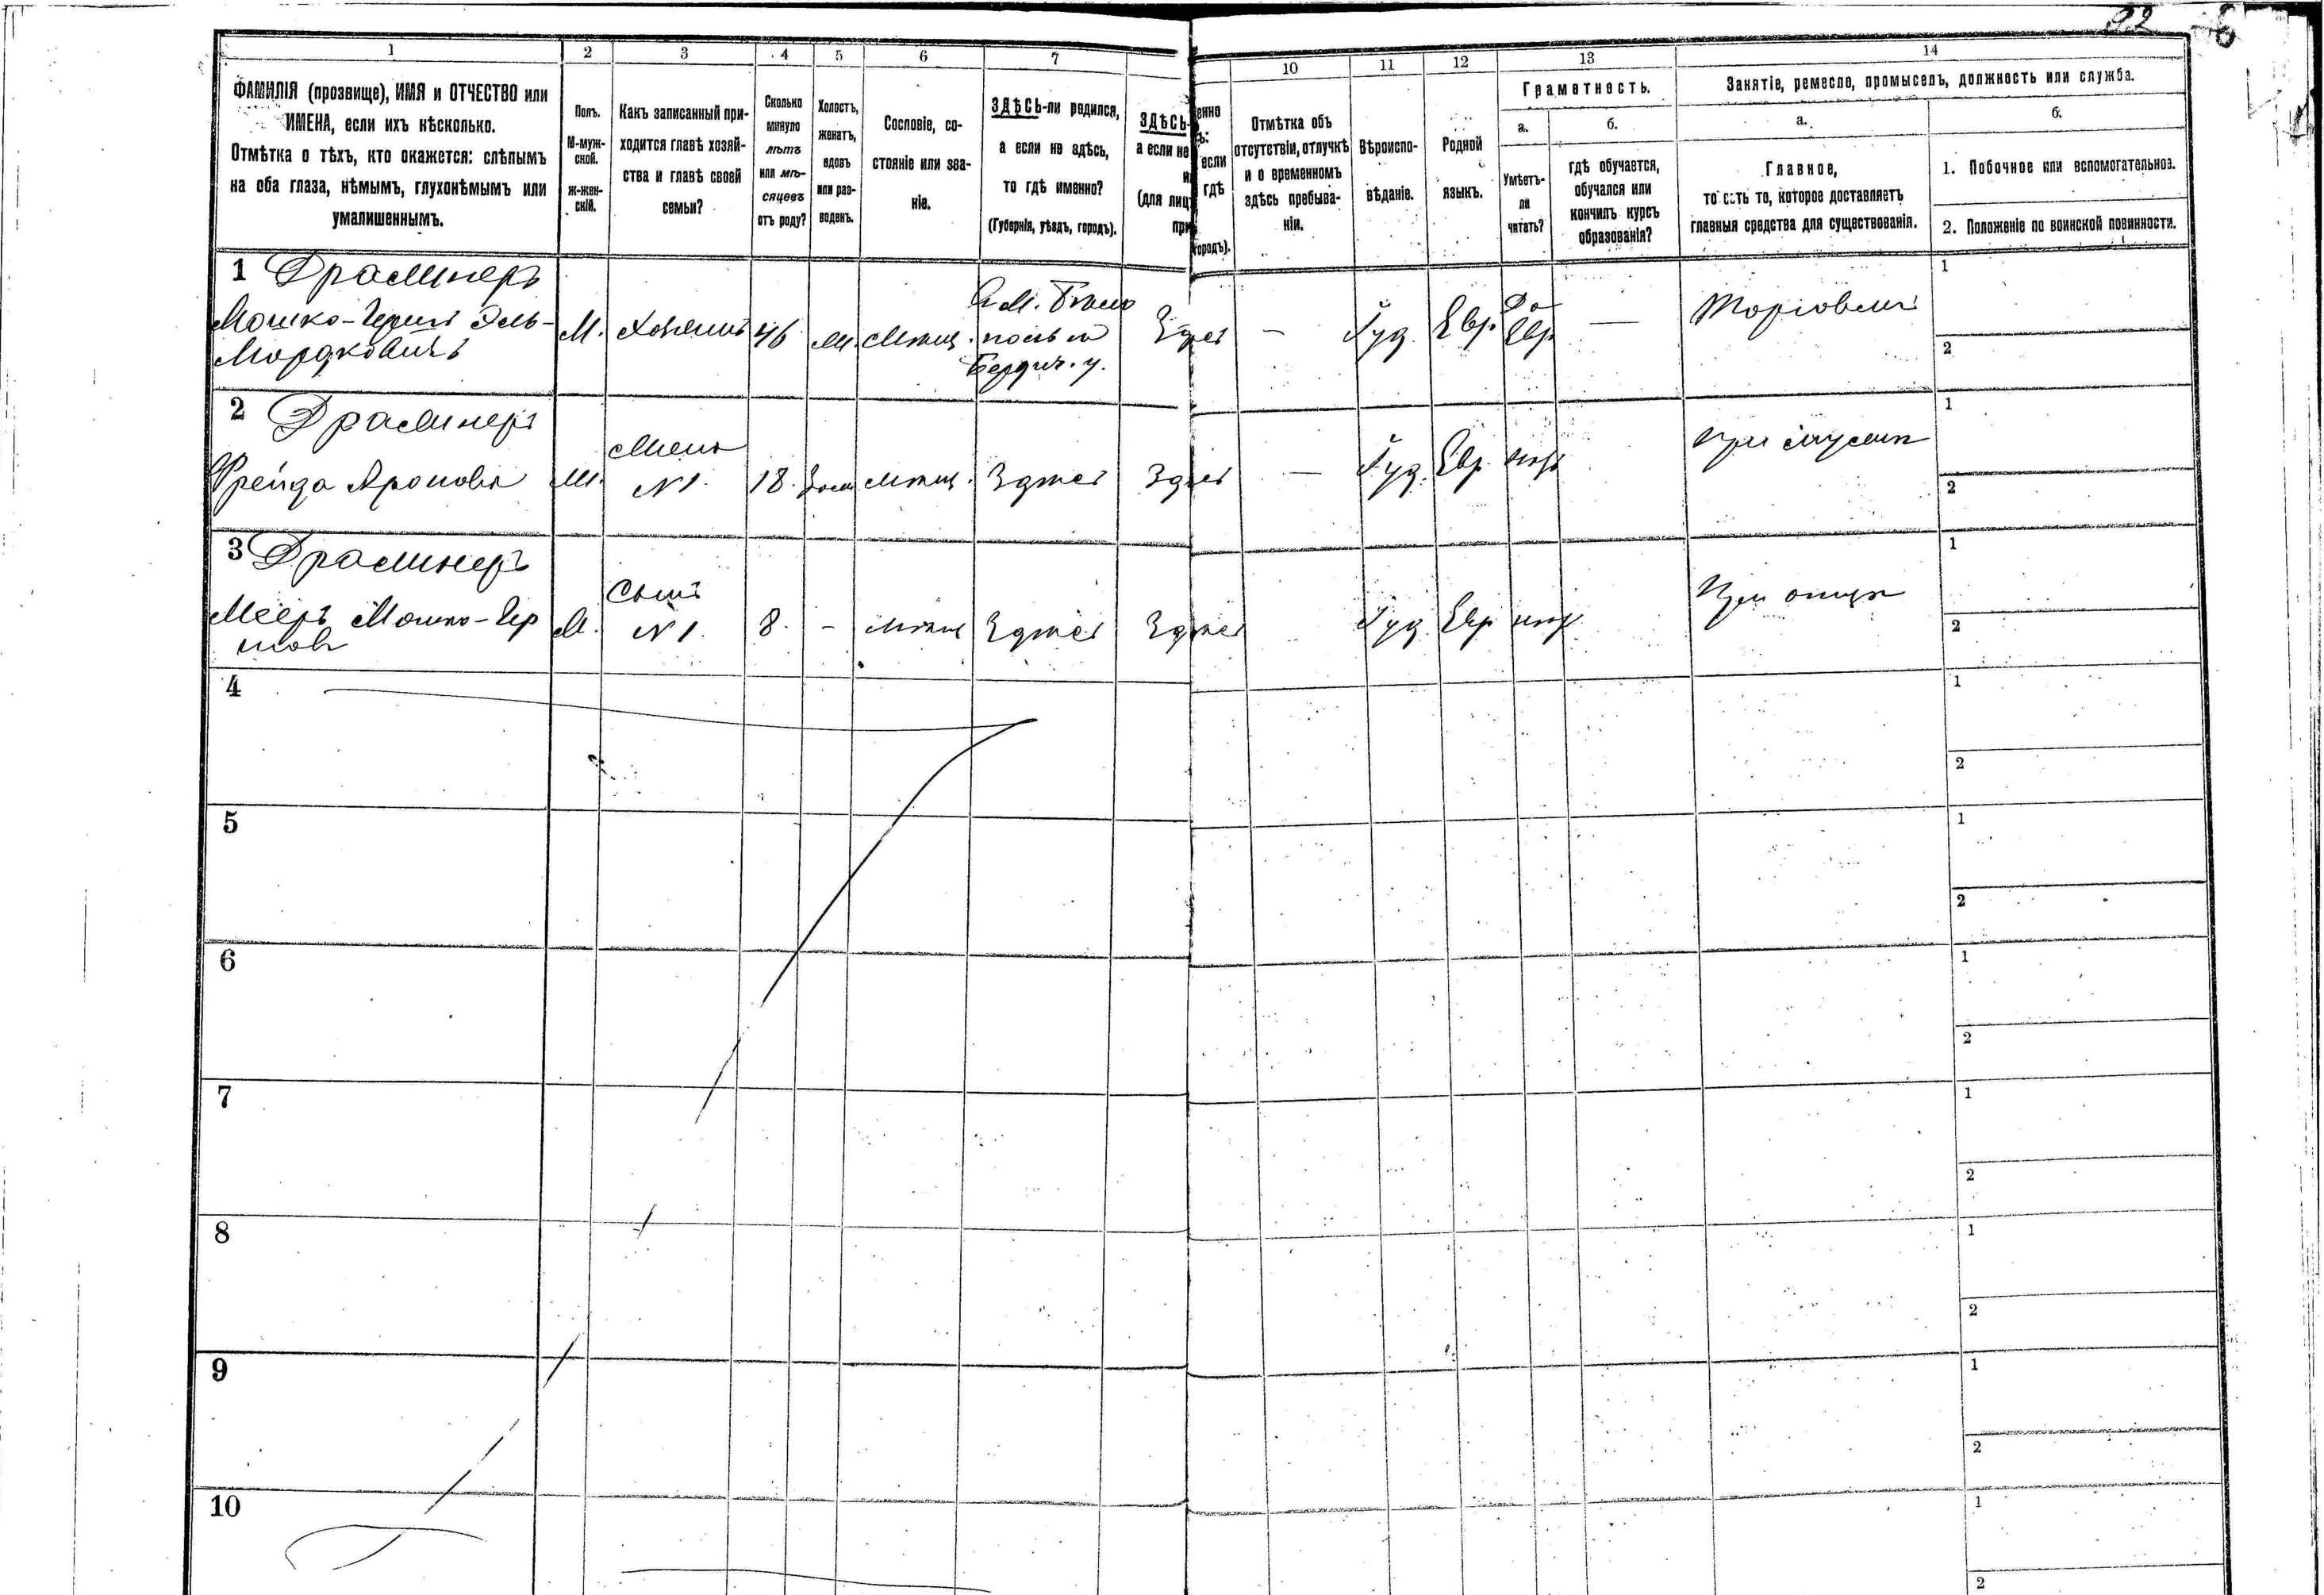 22
1 2 3 4 5 6 7 10 11 12 13 14
ФАМИЛІЯ (прозвище), ИМЯ и ОТЧЕСТВО или
ИМЕНА, если ихъ нѣсколько.
Отмѣтка о тѣхъ, кто окажется: слѣпымъ
на оба глаза, нѣмымъ, глухонѣмымъ или
умалишеннымъ.
Полъ.
М-муж-
ской.
ж-жен-
скій.
Какъ записанный при-
ходится главѣ хозяй-
ства и главѣ своей
семьи?
Сколько
минуло
лѣтъ
или мѣ-
сяцевъ
отъ роду?
Холостъ,
женатъ,
вдовъ
или раз-
веденъ.
Сословіе, со-
стояніе или зва-
ніе.
ЗДѢСЬ-ли родился,
а если не здѣсь,
то гдѣ именно?
(Губернія, уѣздъ, городъ).
ЗДѢСЬ-
а если не
и
(для лиц
при
енно
ъ:
если
гдѣ
городъ).
Отмѣтка объ
отсутствіи, отлучкѣ
и о временномъ
здѣсь пребыва-
ніи.
Вѣроиспо-
вѣданіе.
Родной
языкъ.
Грамотность.
а.
Умѣетъ-
ли
читать?
б.
гдѣ обучается,
обучался или
кончилъ курсъ
образованія?
Занятіе, ремесло, промыселъ, должность или служба.
а.
Главное,
то есть то, которое доставляетъ
главныя средства для существованія.
б.
1. Побочное или вспомогательное.
2. Положеніе по воинской повинности.
1 Драминеръ
Мошко-Гершъ Эль-
Мордковичъ
М.
Хозяинъ
46
Мѣщ.
Бердич. у.
Здѣсь
—
Іуд.
Евр.
Да
Евр.
—
Торговецъ
1
2
2 Драминеръ
Фрейда Аронова
№ 1.
18.
Мѣщ.
Здѣсь
Здѣсь
—
Іуд.
Евр.
нѣтъ
1
2
3 Драминеръ
Мееръ Мошко-Гер
шовъ
М.
Сынъ
№ 1.
8.
-
Мѣщ
Здѣсь
Здѣсь
Іуд.
Евр
нѣтъ
При отцѣ
1
2
4
1
2
5
1
2
6
1
2
7
1
2
8
1
2
9
1
2
10
1
2